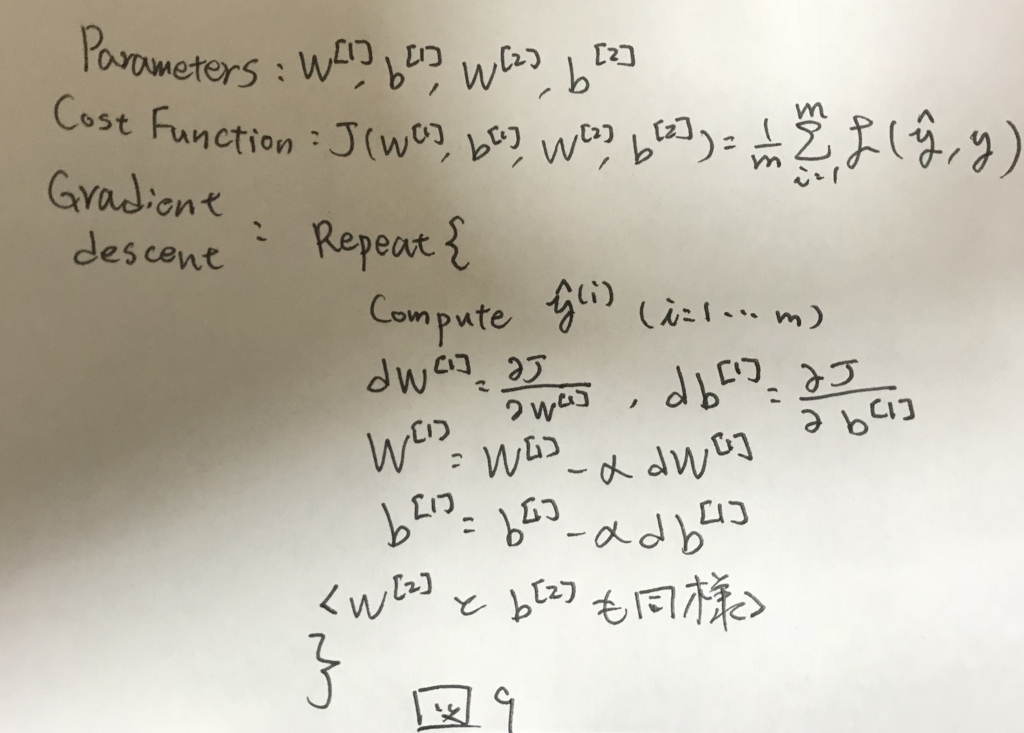 Parameters : W^[1], b^[1], W^[2], b^[2]
Cost Function : J(W^[1], b^[1], W^[2], b^[2]) = 1/m Σ_{i=1}^{m} ℒ(ŷ, y)
Gradient
descent : Repeat {
Compute ŷ^(i) (i=1 ... m)
dW^[1] = ∂J/∂W^[1] , db^[1] = ∂J/∂b^[1]
W^[1] = W^[1] - α dW^[1]
b^[1] = b^[1] - α db^[1]
<W^[2] と b^[2] も同様>
}
図9